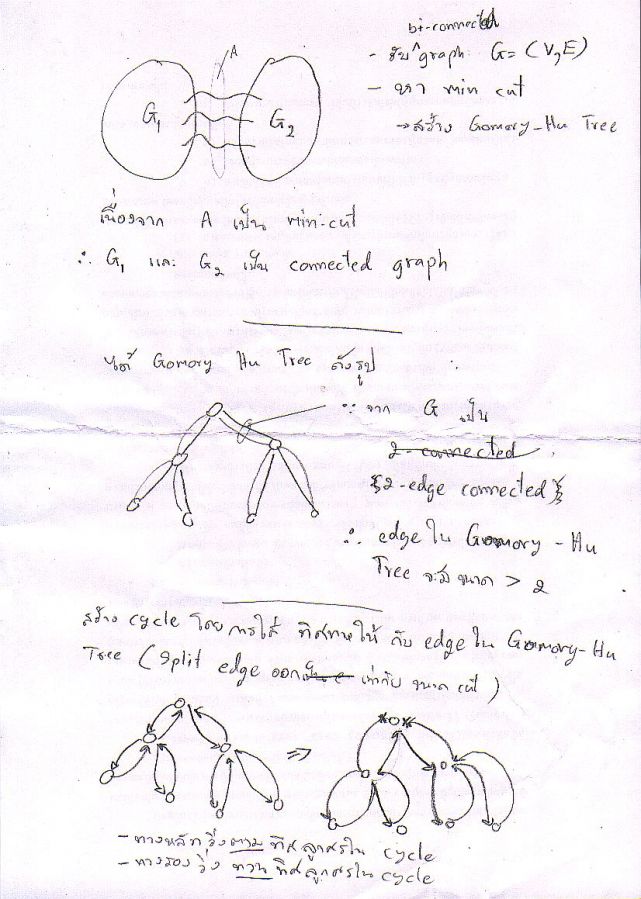 bi-connected
A
- รับ ^ graph G= (V,E)
- หา min cut
→ สร้าง Gomory-Hu Tree
G1
G2
เนื่องจาก A เป็น min-cut
∴ G1 และ G2 เป็น connected graph
ได้ Gomory Hu Tree ดังรูป
∵ จาก G เป็น
2-connected
{2-edge connected}
∴ edge ใน Gomory-Hu
Tree จะมีขนาด > 2
สร้าง cycle โดยการใส่ ทิศทางให้ กับ edge ใน Gomory-Hu
Tree (split edge ออก เท่ากับ ขนาด cut)
⇒
- ทางหลัก วิ่งตาม ทิศ ลูกศรใน cycle
- ทางรอง วิ่ง ทวน ทิศ ลูกศรใน cycle